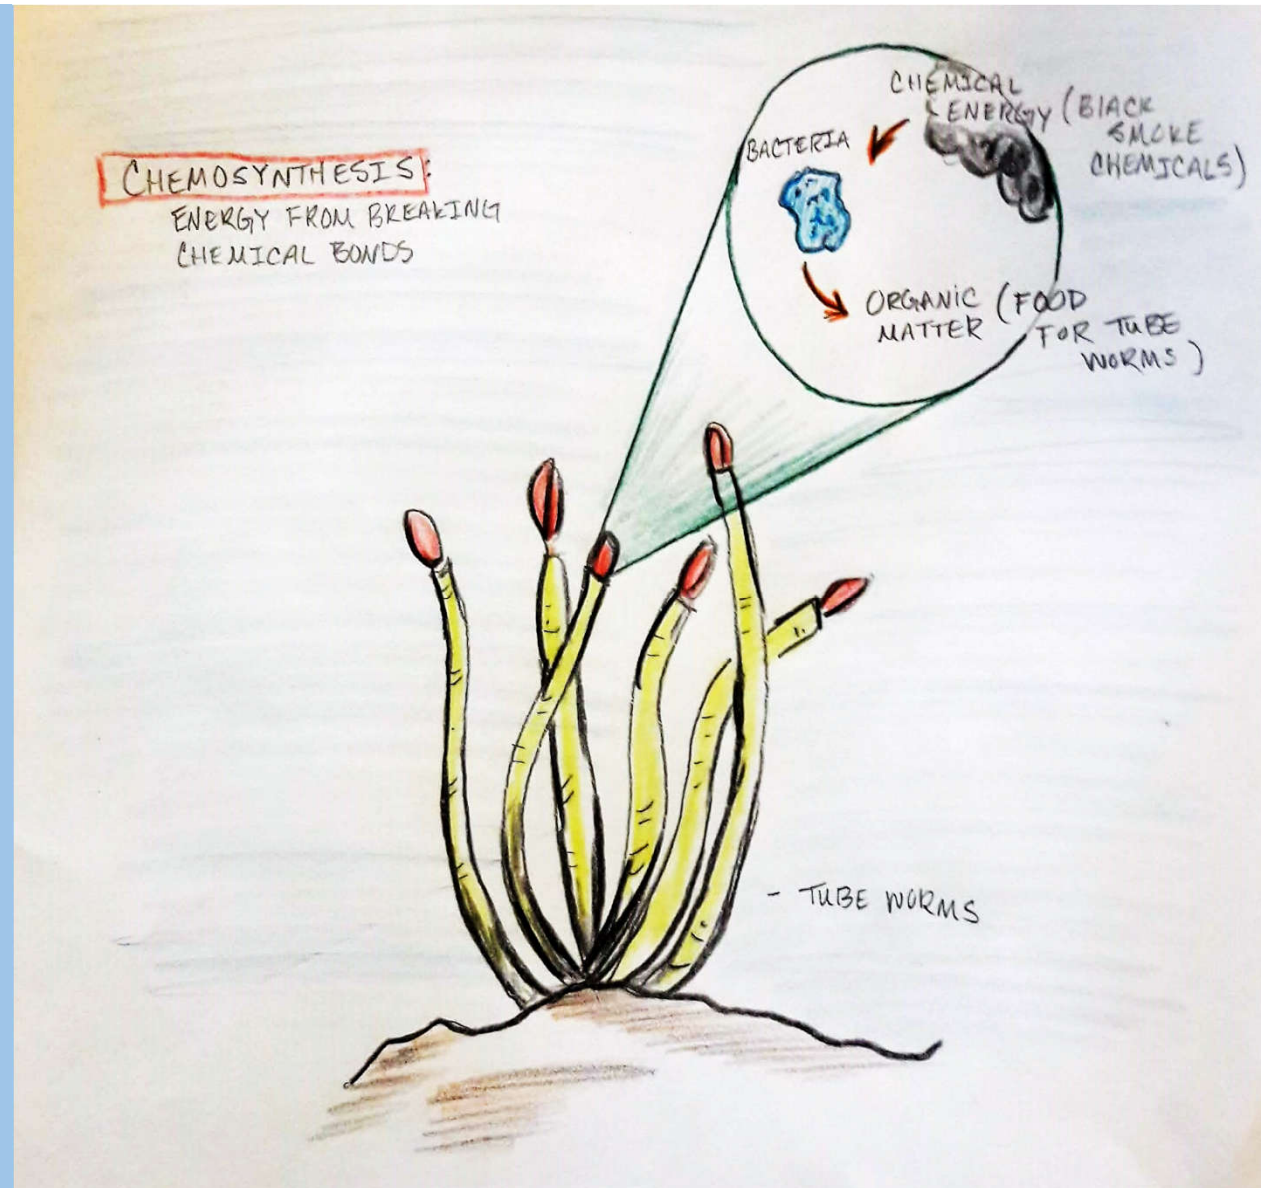 CHEMOSYNTHESIS:
ENERGY FROM BREAKING
CHEMICAL BONDS
CHEMICAL
ENERGY (BLACK
SMOKE
CHEMICALS)
BACTERIA
ORGANIC (FOOD
MATTER FOR TUBE
WORMS)
- TUBE WORMS